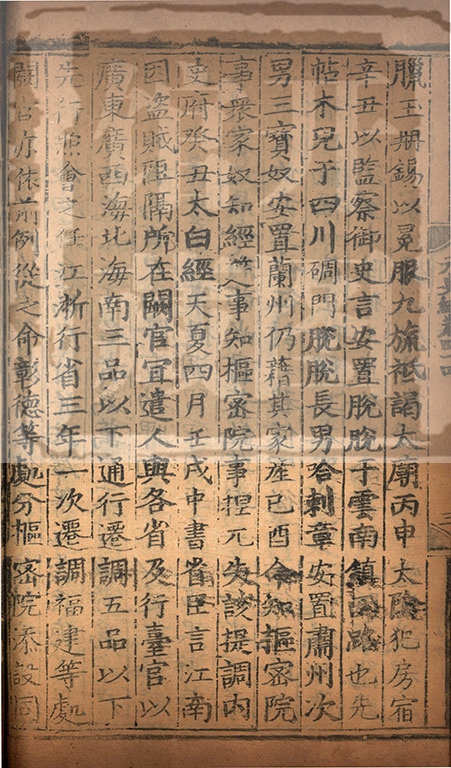 臘王冊錫以冕服九旒祗謁太廟丙申太陰犯房宿
辛丑以監察御史言安置脫脫于雲南鎮西路也先
帖木兒于四川碉門脫脫長男哈剌章安置肅州次
男三寶奴安置蘭州仍籍其家產己酉命知樞密院
事衆家奴知經筵事知樞密院事捏兀失該提調內
史府癸丑太白經天夏四月壬戌中書省臣言江南
因盜賊阻隔所在闕官宜遣人與各省及行臺官以
廣東廣西海北海南三品以下通行遷調五品以下
先行照會之任江浙行省三年一次遷調福建等處
闕官亦依前例從之命彰德等處分樞密院添設同